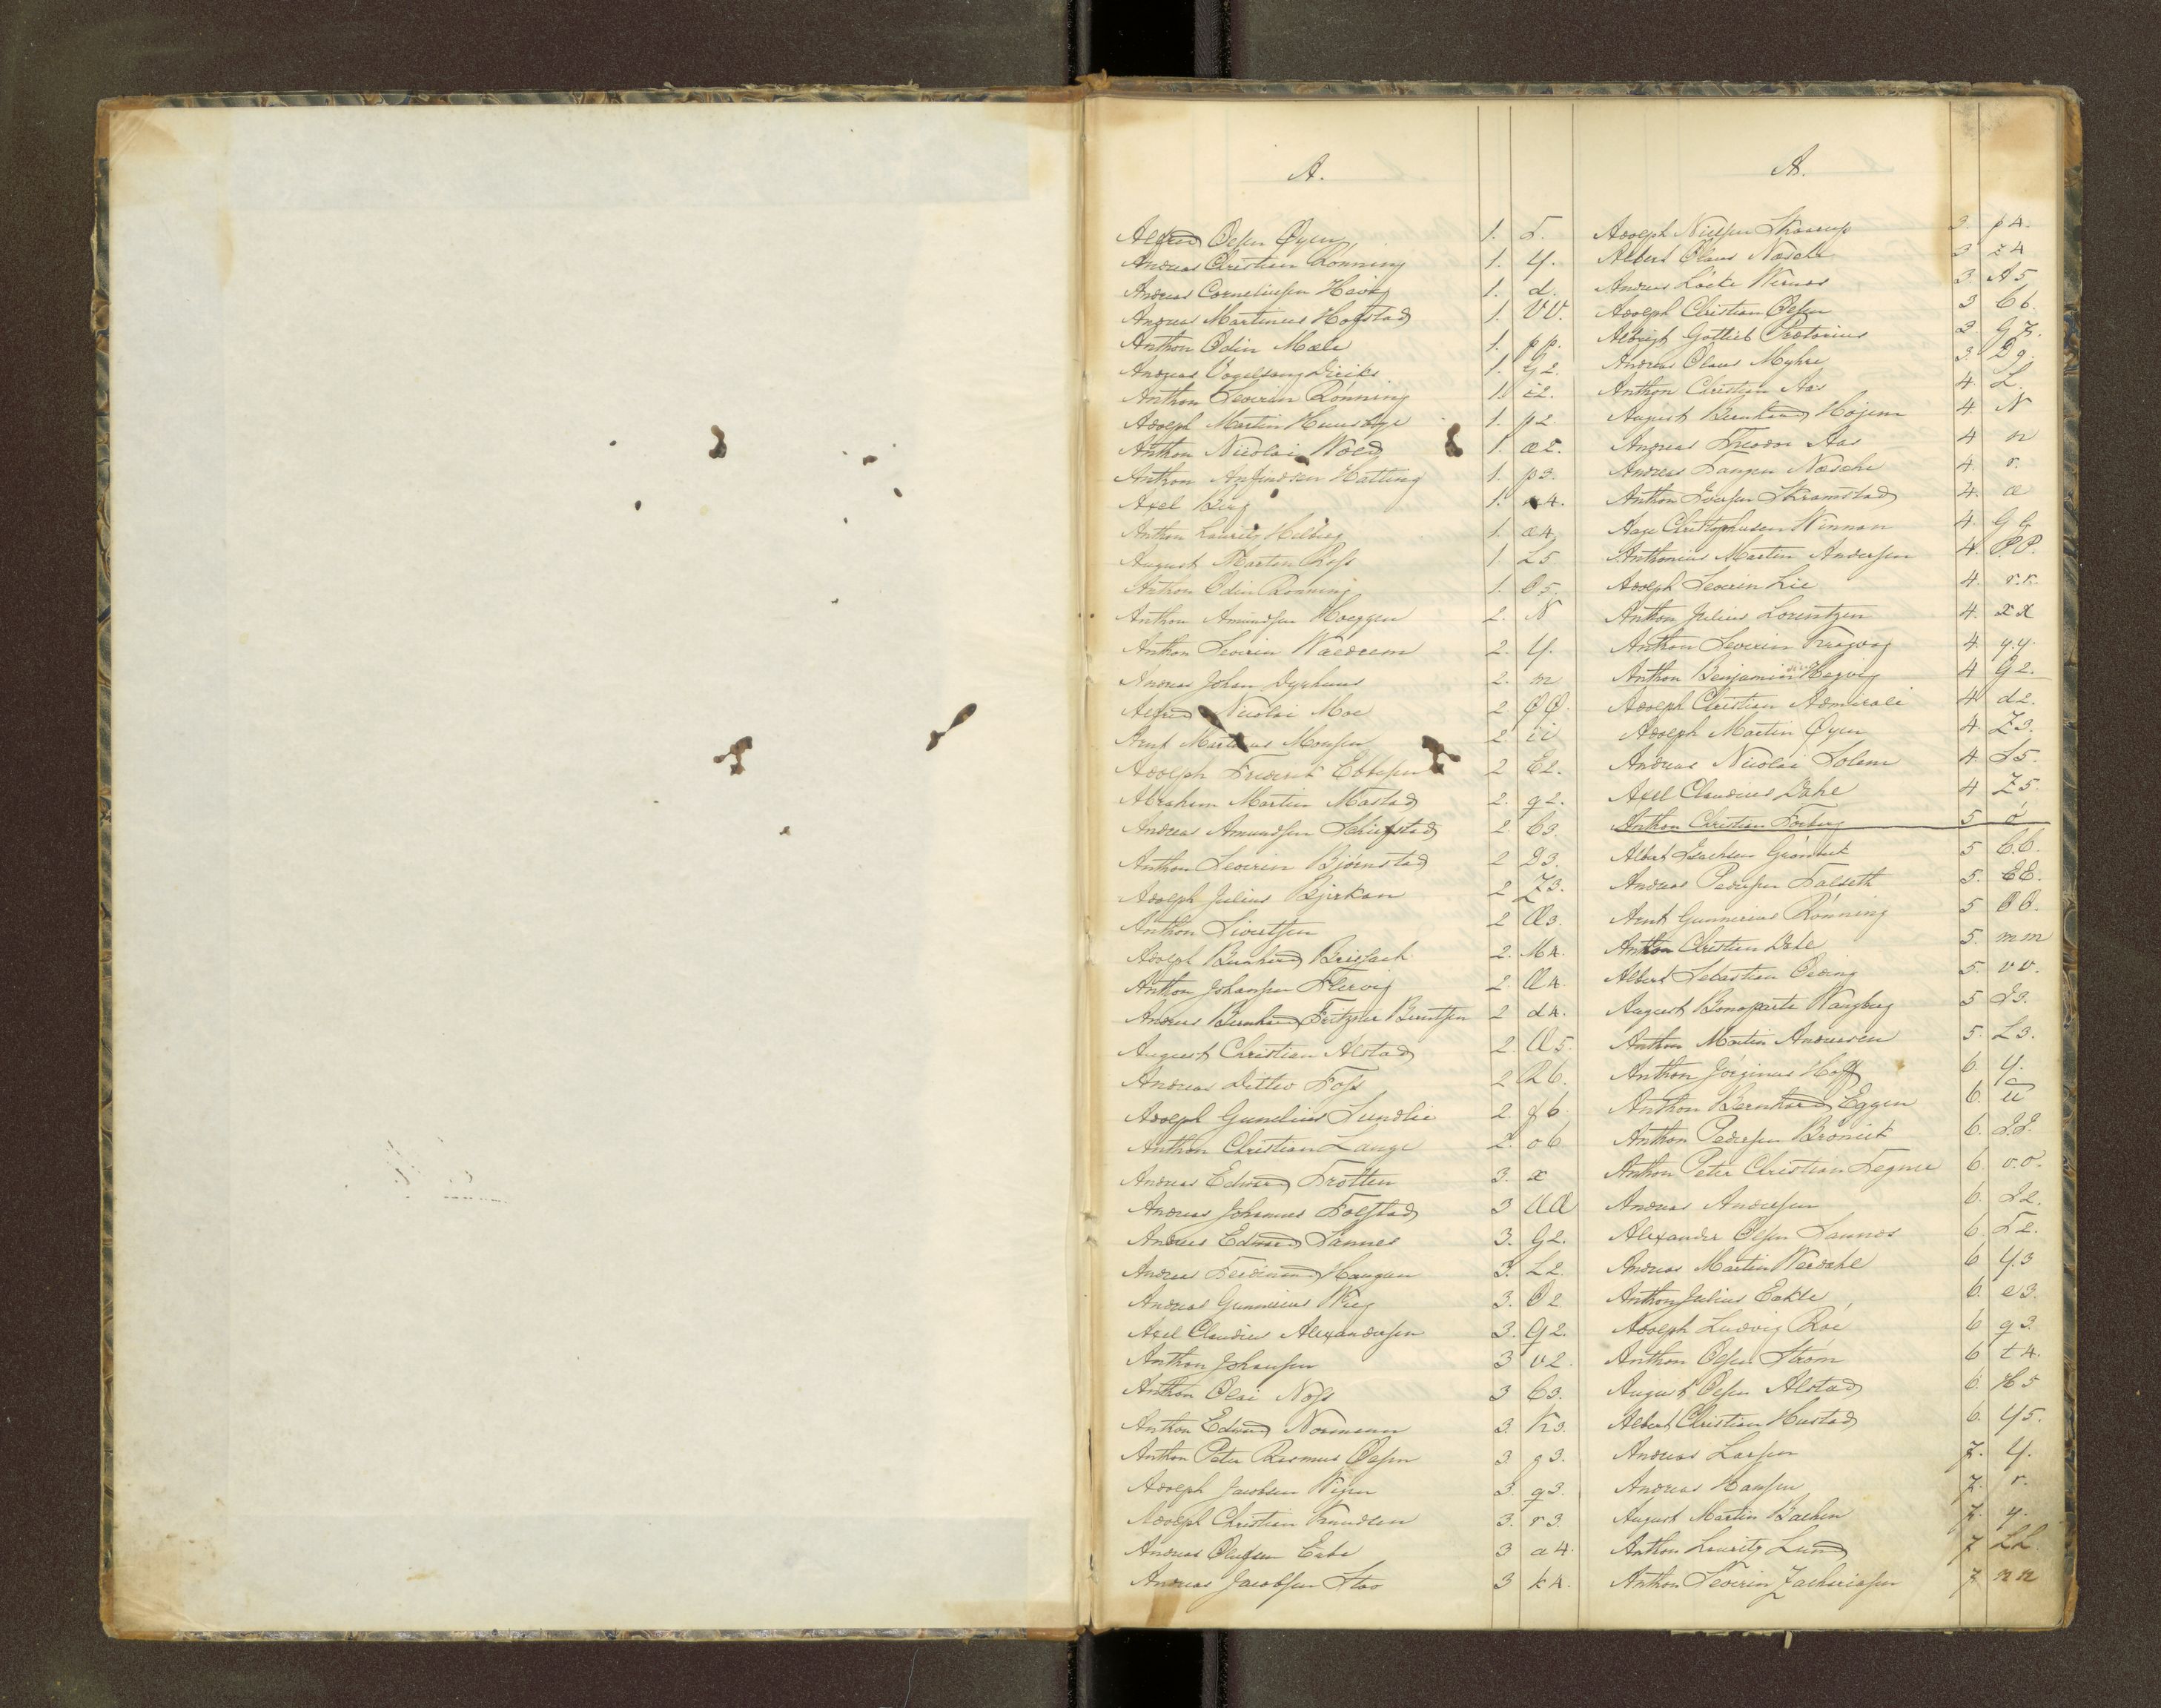 A.
Alfred Olsen Øyen 1. T.
Andreas Christian Rönning 1. Y.
Andreas Corneliusen Havig 1. d.
Andreas Martinus Hofstad 1. VV.
Anthon Odin Mæle 1. pp.
Andreas Vogelsang Diriks 1. G2.
Anthon Severin Rönning 1. i2.
Adolph Martin Huus 1. p2.
Anthon Nicolai Wold 1. æ2.
Anthon Anfindsen Hatling 1. p3.
Axel Berg 1. 4.
Anthon Lauritz Hilberg 1. æ4.
August Morten Ross 1 L5.
Anthon Odin Rönning 1. O5.
Anthon Amundsen Hoeggen 2. N
Anthon Severin Waedrem 2. Y.
Andreas Johan Dyrhaus 2. m
Alfred Nicolai Moe 2 QQ.
Arnt Martinus Monsen 2. ii
Adolph Frederik Ebbesen 2 E2.
Abraham Martin Mostad 2. g2.
Andreas Amundsen Schiefstad 2. C3.
Anthon Severin Björnstad 2 D3.
Adolph Julius Bjirkan 2 Z3.
Anthon Sivertsen 2 Æ3.
Adolph Bernhard Brissach 2. M4.
Anthon Johansen Flervig 2. Æ4.
Andreas Bernhard Fritzner Berntsen 2 d4.
August Christian Alstad 2. Æ5.
Andreas Ditlev Foss 2 R6.
Adolph Gunelius Sundlie 2. f6.
Anthon Christian Lange 2. o6
Andreas Edvard Trötten 3. x
Andreas Johannes Folstad 3 ÆÆ
Andreas Edvard Sannes 3. G2.
Andreas Ferdinand Haugan 3. L2.
Andreas Gunnerius Wiig 3. O2
Axel Claudius Alexandersen 3. Q2.
Anthon Johansen 3 v2.
Anthon Olai Noss 3 C3.
Anthon Edvard Normann 3. K3.
Anthon Peter Rasmus Olsen 3 g3.
Adolph Jacobsen Wigen 3. q3.
Adolph Christian Knudsen 3. r3.
Andreas Olufsen 3 a4.
Andreas Jacobsen Stoe 3 k4.
A.
Adolph Nielsen Skaarup 3. p4.
Albert Olaus Næsche 3 z4
Andreas Löcke Wirnes 3. A5.
Adolph Christian Olsen 3 C6.
Albrigt Gottlieb Prætorius 3. G7.
Andreas Olaus Myhre 3. D9.
Anthon Christian Aas 4. L.
August Bernhard Hojem 4. N
Andreas Theodor Aas 4 n
Andreas Tangen Næsche 4. r.
Anthon Iversen Skramstad 4. æ
Aage Christophersen Winnan 4. GG.
Anthonius Martin Andersen 4. PP.
Adolph Severin Lie 4. r.r.
Anthon Julius Lorentzen 4. xx
Anthon Severin Kragvag 4. y.y.
Anthon Benjamin Hegvig 4 G2.
Adolph Christian Admirali 4 d2.
Adolph Martin Øyen 4. Z3.
Andreas Nicolai Solem 4 S5.
Axel Claudius Dahl 4 Z5.
Anthon Christian Forberg 5 ö
Albert Isachsen Grönbek 5 C.C.
Andreas Pedersen Falseth 5. EE.
Arnt Gunnerius Rönning 5 OO.
Anthon Christian Dahl 5. mm
Albert Sebastian Oeding 5. vv.
August Bonaparte Wangberg 5 J3.
Anthon Martin Andersen 5. L3.
Anthon Jörginus Hoff 6. Y.
Anthon Bernhard Eggen 6. u
Anthon Pedersen Broniet 6. JJ.
Anthon Peter Christian Tegner 6 o.o.
Andreas Andersen 6. J2.
Alexander Olsen Sannes 6. T2.
Andreas Martin Werdahl 6 Y3
Anthon Julius Eckle 6. e3.
Adolph Ludvig Roe 6 g3.
Anthon Olsen Ström 6 t4.
August Olsen Alstad 6. H5
Albert Christian Hustad 6. Y5.
Andreas Larsen 7. Y.
Andreas Hansen 7. r.
August Martin Bachen 7. y.
Anthon Lauritz Lund 7 LL.
Anthon Severin Zachariasen 7 nn